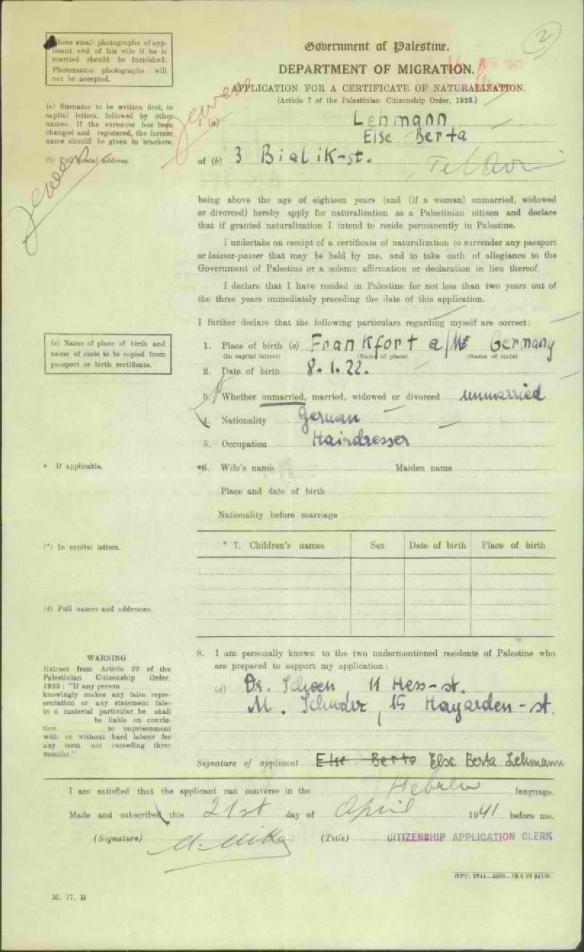 Three small photographs of app-
licant and of his wife if he is
married should be furnished.
Photomaton photographs will
not be accepted.
2
Government of Palestine.
DEPARTMENT OF MIGRATION.
APPLICATION FOR A CERTIFICATE OF NATURALIZATION.
(Article 7 of the Palestinian Citizenship Order, 1925.)
(a) Surname to be written first, in
capital letters, followed by other
names. If the surname has been
changed and registered, the former
name should be given in brackets.
I (a) Lehmann
Else Berta
(b) Full postal address.
of (b) 3 Bialik-st. Tel Aviv
being above the age of eighteen years (and (if a woman) unmarried, widowed
or divorced) hereby apply for naturalization as a Palestinian citizen and declare
that if granted naturalization I intend to reside permanently in Palestine.
I undertake on receipt of a certificate of naturalization to surrender any passport
or laissez-passer that may be held by me, and to take oath of allegiance to the
Government of Palestine or a solemn affirmation or declaration in lieu thereof.
I declare that I have resided in Palestine for not less than two years out of
the three years immediately preceding the date of this application.
I further declare that the following particulars regarding myself are correct:
(c) Name of place of birth and
name of state to be copied from
passport or birth certificate.
1. Place of birth (c) Frankfort a/M Germany
(In capital letters) (Name of place) (Name of state)
2. Date of birth 8.1.22.
3. Whether unmarried, married, widowed or divorced unmarried
4. Nationality German
5. Occupation Hairdresser
* If applicable.
*6. Wife's name Maiden name
Place and date of birth
Nationality before marriage
(*) In capital letters.
* 7. Children's names Sex Date of birth Place of birth
(d) Full names and addresses.
8. I am personally known to the two undermentioned residents of Palestine who
are prepared to support my application:
(d) Dr. Schoen 11 Hess-st.
M. 15 Hayarden-st.
WARNING
Extract from Article 22 of the
Palestinian Citizenship Order,
1925: "If any person
knowingly makes any false repre-
sentation or any statement false
in a material particular he shall
be liable on convic-
tion to imprisonment
with or without hard labour for
any term not exceeding three
months."
Signature of applicant Else Berta Else Berta Lehmann
I am satisfied that the applicant can converse in the Hebrew language.
Made and subscribed this 21st day of April 1941 before me.
(Signature) (Title) CITIZENSHIP APPLICATION CLERK
M. 77. B